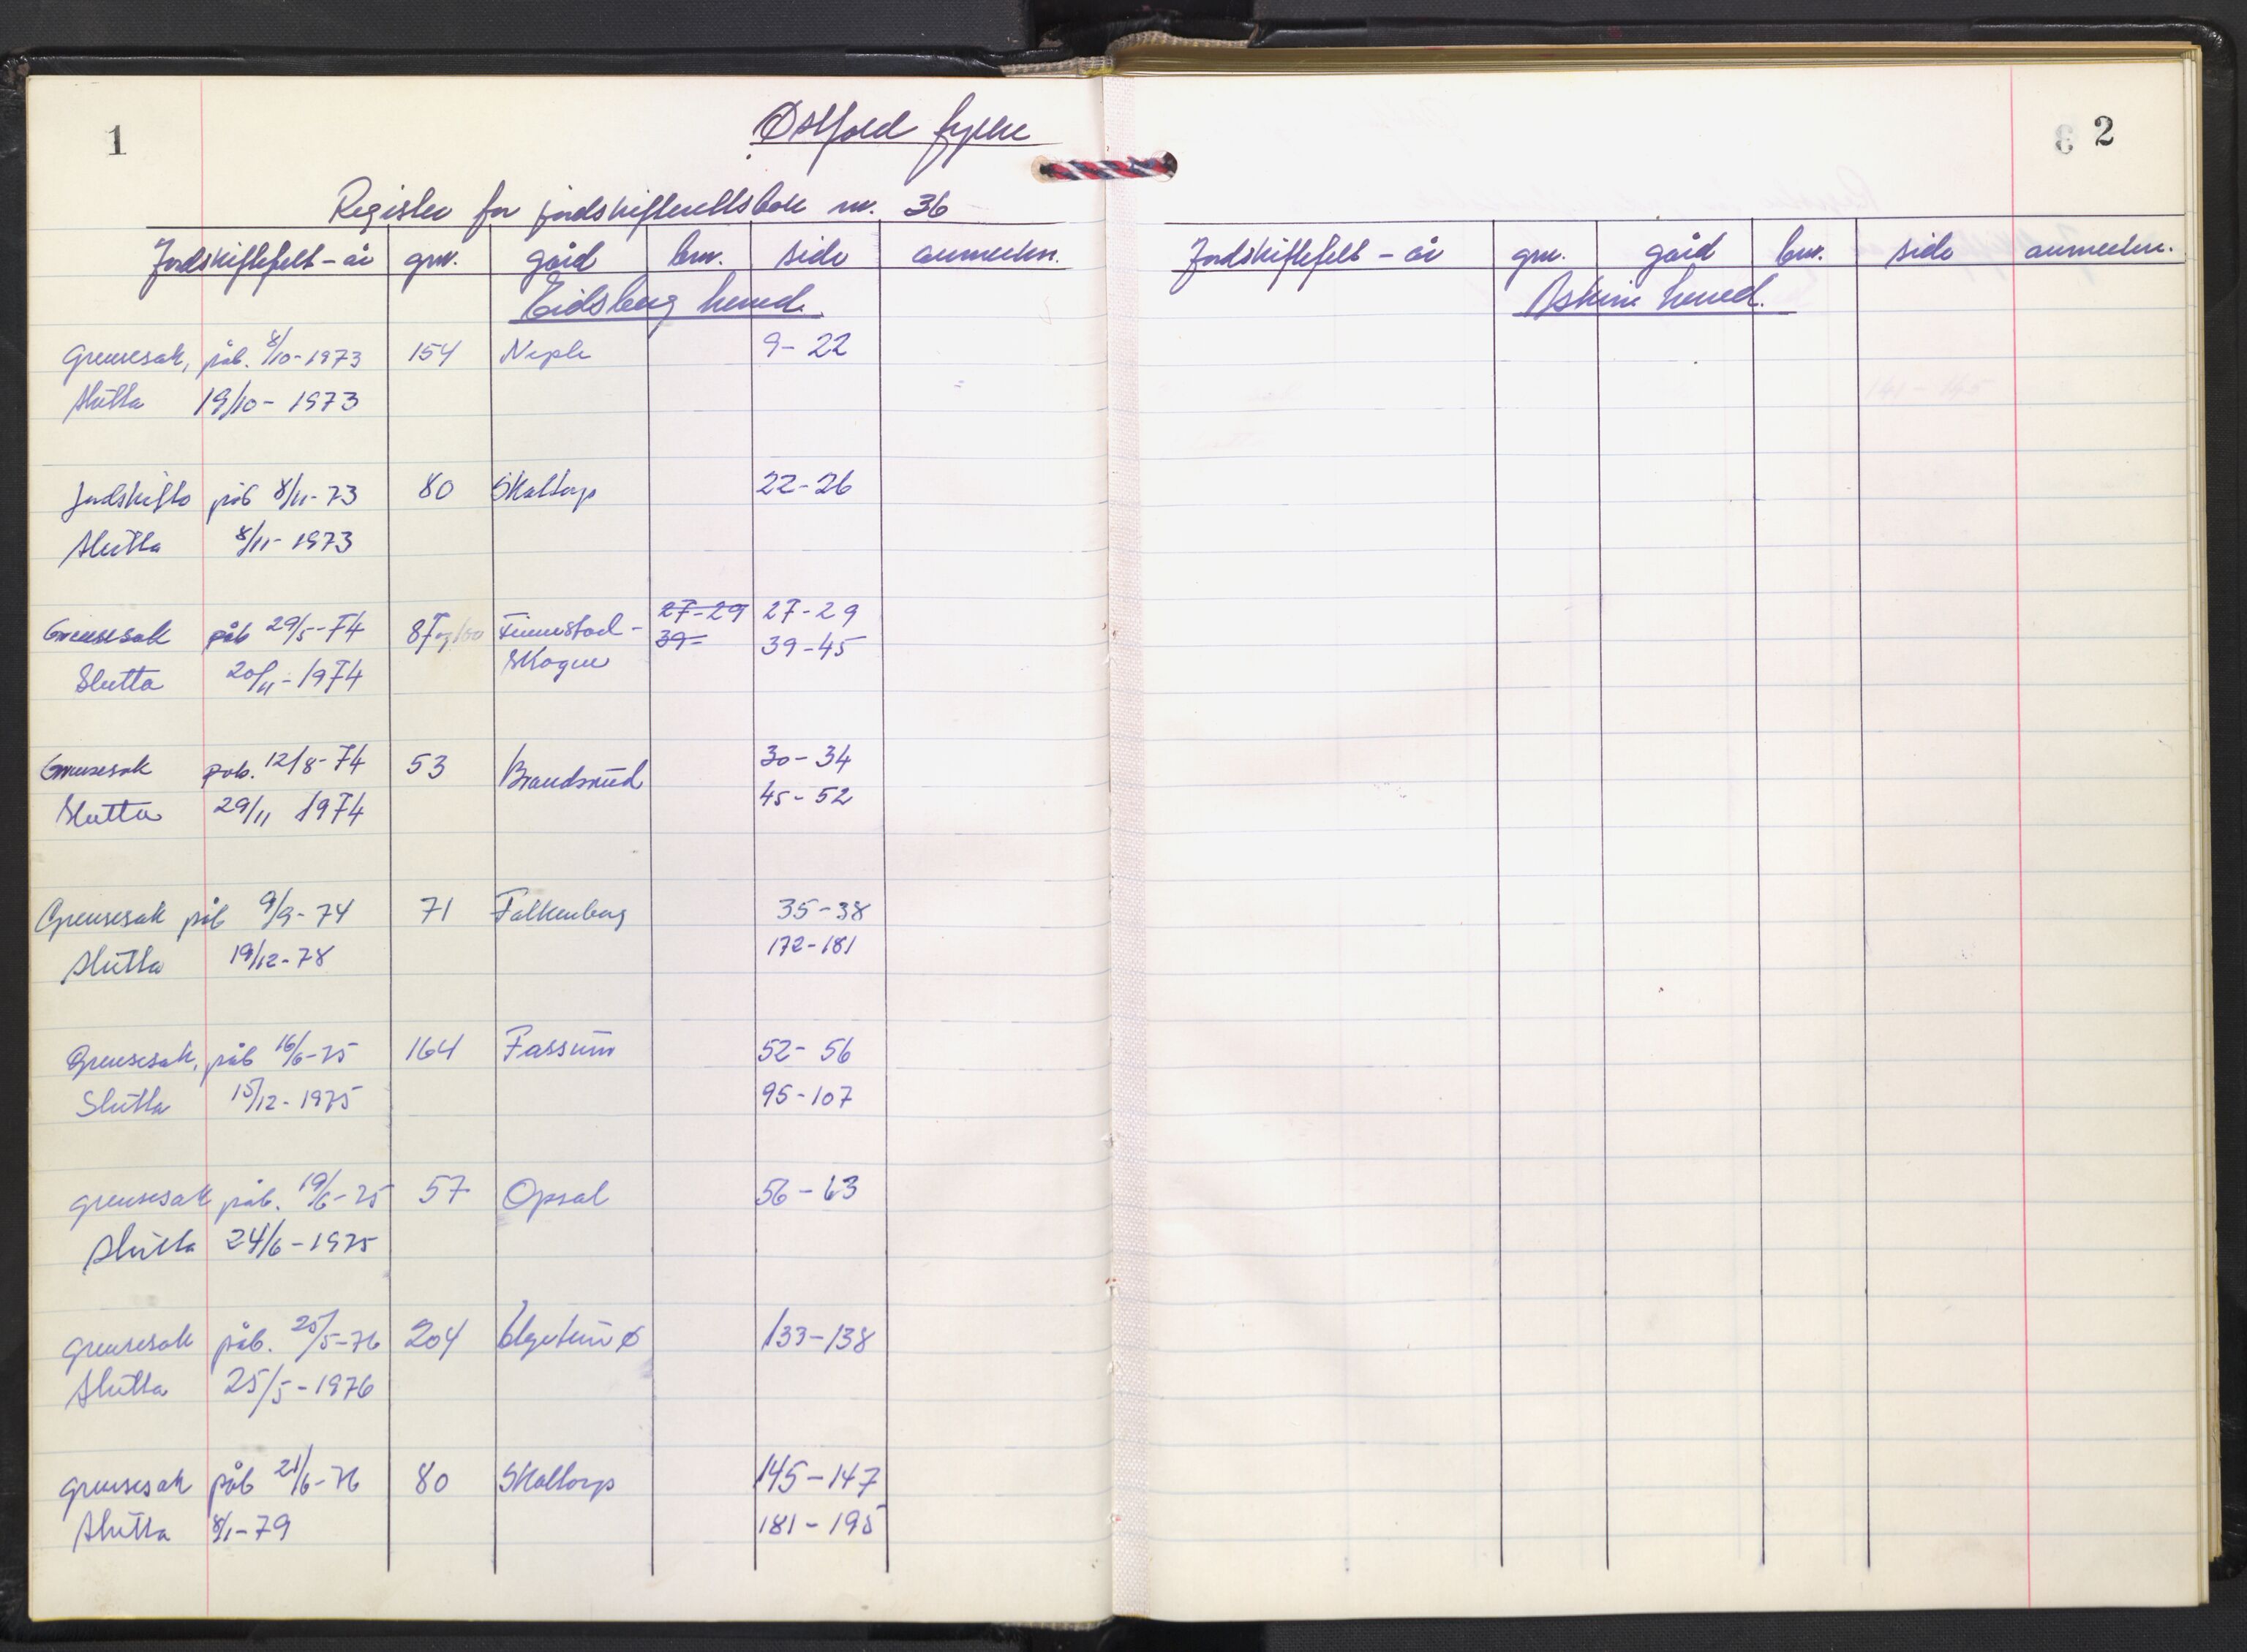 1
Østfold fylke
Register for jordskifterettsbok nr. 36
Jordskiftefelt - år gnr. gård bnr. side anmerkn.
Eidsberg herred.
Grensesak, påb. 8/10-1973 154 Neple 9-22
Slutta 19/10-1973
Jordskifte påb 8/11-73 80 Skaltorp 22-26
Slutta 8/11-1973
Grensesak påb 29/5-74 87 og 150 Finnestad- 27-29 27-29
39- 39-45
Slutta 20/11-1974 skogen
Grensesak påb. 12/8-74 53 Brandsrud 30-34
Slutta 29/11 1974 45-52
Grensesak påb 9/9-74 71 Falkenberg 35-38
Slutta 19/12-78 172-181
Grensesak, påb 16/6-75 164 Fossum 52-56
Slutta 15/12-1975 95-107
grensesak påb. 19/6-75 57 Opsal 56-63
slutta 24/6-1975
grensesak påb. 25/5-76 204 ø 133-138
Slutta 25/5-1976
grensesak påb 21/6-76 80 Skaltorp 145-147
Slutta 8/1-79 181-195
2
Jordskiftefelt - år gnr. gård bnr. side anmerkn.
Askim herred.